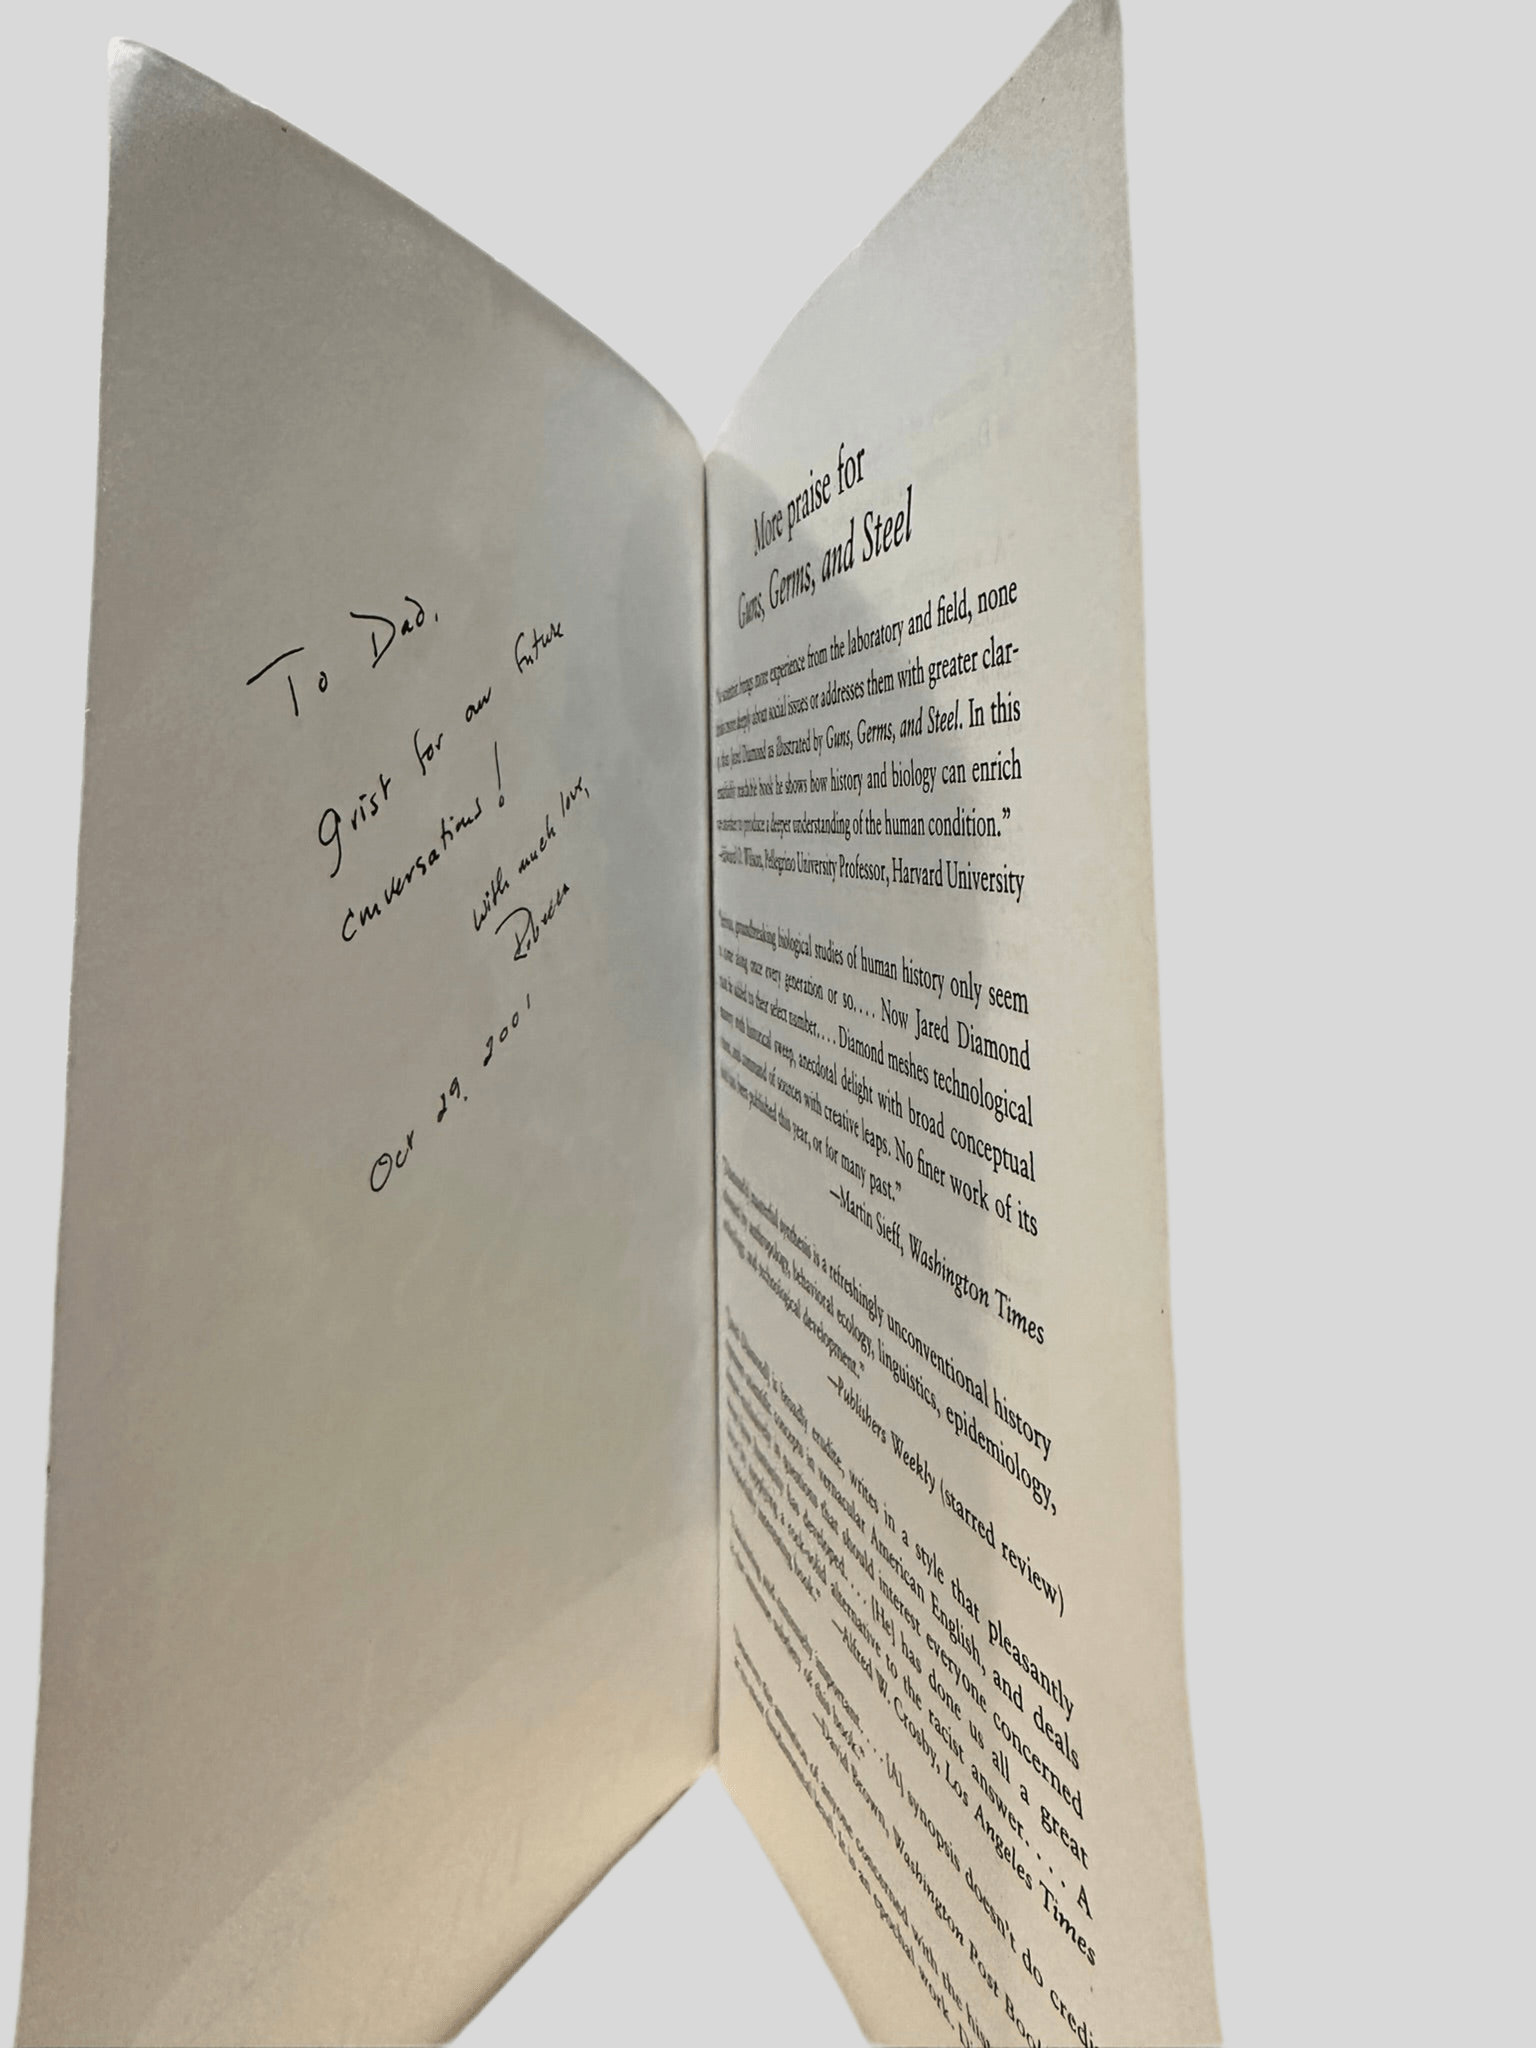 To Dad,
Grist for our future
conversations!
With much love,
Rebecca
Oct 29, 2001
More praise for
Guns, Germs, and Steel
scientist brings more experience from the laboratory and field, none
more deeply about social issues or addresses them with greater clar-
than Jared Diamond as illustrated by Guns, Germs, and Steel. In this
remarkably readable book he shows how history and biology can enrich
one another to produce a deeper understanding of the human condition.”
—Edward O. Wilson, Pellegrino University Professor, Harvard University
groundbreaking biological studies of human history only seem
to come along once every generation or so.... Now Jared Diamond
must be added to their select number.... Diamond meshes technological
mastery with historical sweep, anecdotal delight with broad conceptual
vision, and command of sources with creative leaps. No finer work of its
kind has been published this year, or for many past.”
—Martin Sieff, Washington Times
“Diamond's masterful synthesis is a refreshingly unconventional history
informed by anthropology, behavioral ecology, linguistics, epidemiology,
archeology, and technological development.”
—Publishers Weekly (starred review)
“[Jared Diamond] is broadly erudite, writes in a style that pleasantly
expresses scientific concepts in vernacular American English, and deals
almost exclusively in questions that should interest everyone concerned
about how humanity has developed.... [He] has done us all a great
favor by supplying a rock-solid alternative to the racist answer.... A
wonderfully interesting book.”
—Alfred W. Crosby, Los Angeles Times
“Fascinating and extremely important.... [A] synopsis doesn't do
the immense subtlety of this book.”
—David Brown, Washington Post
the attention of anyone concerned with the
fundamental level. It is an epochal work.